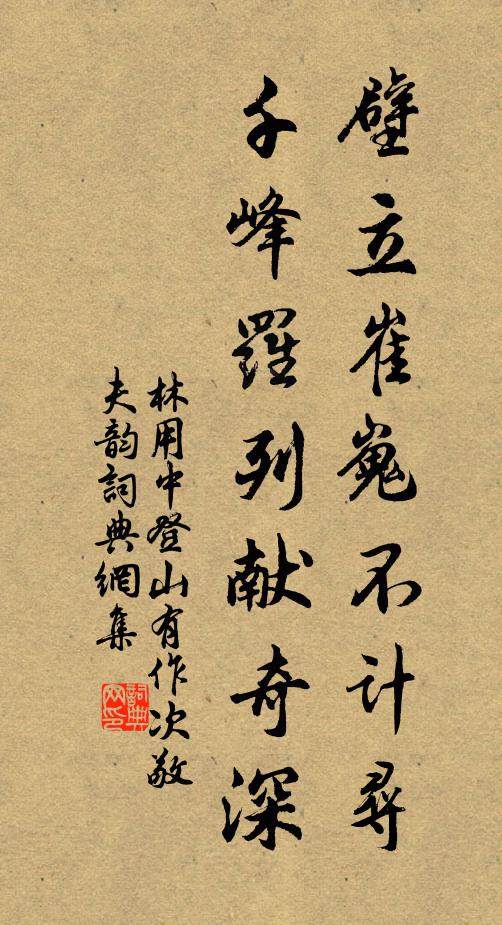 壁立崔嵬不计尋
千峰羅列献奇深
林用中登山有作次敬
夫韵詞典網集
詞典网印